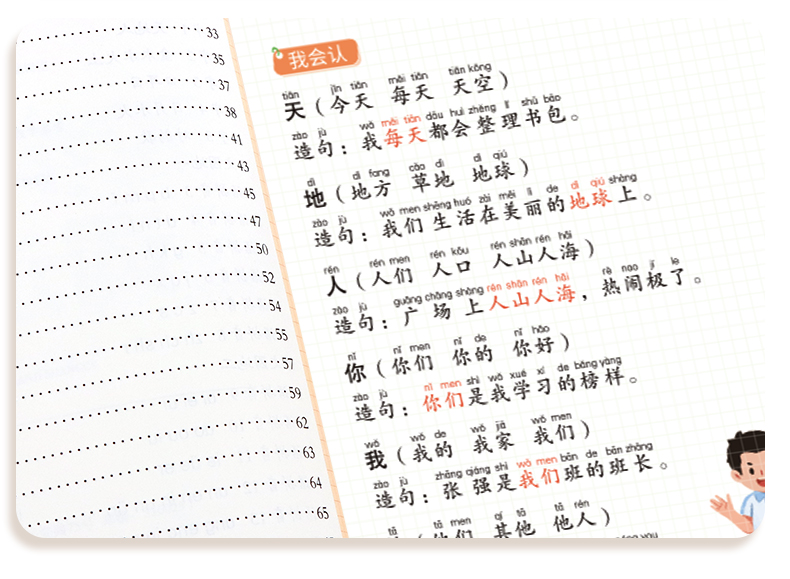 33
35
37
38
41
43
45
47
50
52
54
55
57
59
62
63
64
65
我会认
tiān jīn tiān měi tiān tiān kōng
天（今天 每天 天空）
zào jù wǒ měi tiān dōu huì zhěng lǐ shū bāo
造句：我每天都会整理书包。
dì dì fang cǎo dì dì qiú
地（地方 草地 地球）
zào jù wǒ men shēng huó zài měi lì de dì qiú shàng
造句：我们生活在美丽的地球上。
rén rén men rén kǒu rén shān rén hǎi
人（人们 人口 人山人海）
zào jù guǎng chǎng shàng rén shān rén hǎi rè nao jí le
造句：广场上人山人海，热闹极了。
nǐ nǐ men nǐ de nǐ hǎo
你（你们 你的 你好）
zào jù nǐ men shì wǒ xué xí de bǎng yàng
造句：你们是我学习的榜样。
wǒ wǒ de wǒ jiā wǒ men
我（我的 我家 我们）
zào jù zhāng qiáng shì wǒ men bān de bān zhǎng
造句：张强是我们班的班长。
tā tā men qí tā tā rén
他（他们 其他 他人）